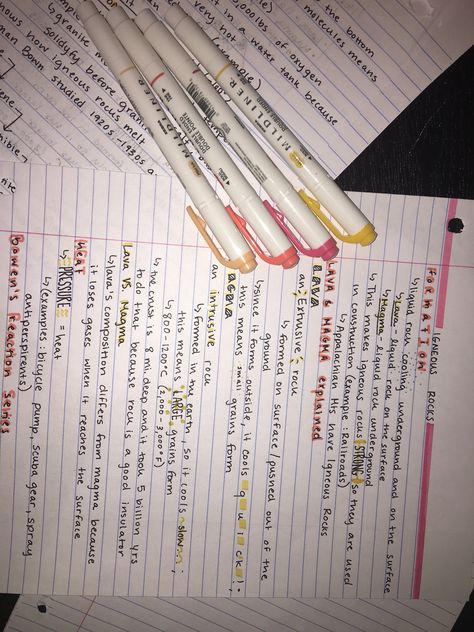 IGNEOUS ROCKS
formation
↳liquid rock cooling underground and on the surface
↳Lava - liquid rock on the surface
↳Magma - liquid rock underground
↳This makes igneous rocks STRONG so they are used
in construction (example: Railroads)
↳Appalachian Mts have Igneous Rocks
LAVA & MAGMA explained
LAVA
an: Extrusive: rock
↳formed on surface/pushed out of the
ground
↳since it forms outside, it cools quick!,
this means small grains form
MAGMA
an intrusive rock
↳formed in the earth, so it cools slow...;
this means LARGE grains form
↳800-1200°C (2,000-3,000°F)
↳the crust is 8 mi. deep and it took 5 billion yrs
to do that because rock is a good insulator
Lava vs. Magma
↳lava's composition differs from magma because
it loses gases when it reaches the surface
HEAT
↳PRESSURE = heat
↳(examples: bicycle pump, scuba gear, spray
antiperspirents)
Bowen's Reaction Series
the bottom
molecules means
,000lbs of oxygen
it in a water tank because
very hot
solidify before grani
↳granite mo
hows how igneous rocks melt
Bown studied 1920s-1930s a
MILDLINER
MILDLINER